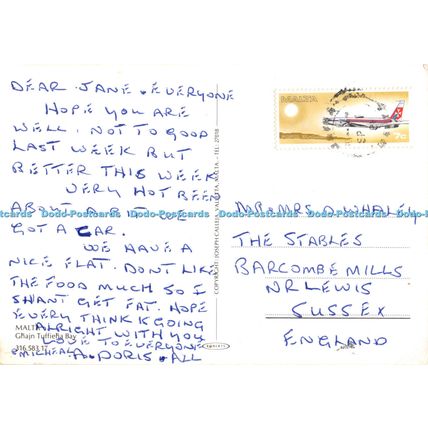 DEAR JANE. EVERYONE
HOPE YOU ARE
WELL. NOT TO GOOD
LAST WEEK BUT
BETTER THIS WEEK
VERY HOT BEEN
ABOUT A BIT WE
GOT A CAR.
WE HAVE A
NICE FLAT. DONT LIKE
THE FOOD MUCH SO I
SHANT GET FAT. HOPE
EVERY THINK GOING
ALRIGHT WITH YOU
LOVE TO EVERYONE
A. DORIS. ALL
MALTA
Għajn Tuffieħa Bay
316.583.1
COPYRIGHT: JOSEPH CALLEJA, VALLETTA, MALTA - TEL: 27018
MALTA
7c
MR MRS D. WHALEY
THE STABLES
BARCOMBE MILLS
NR LEWIS
SUSSEX
ENGLAND
Dodo-Postcards Dodo-Postcards Dodo-Postcards Dodo-Postcards